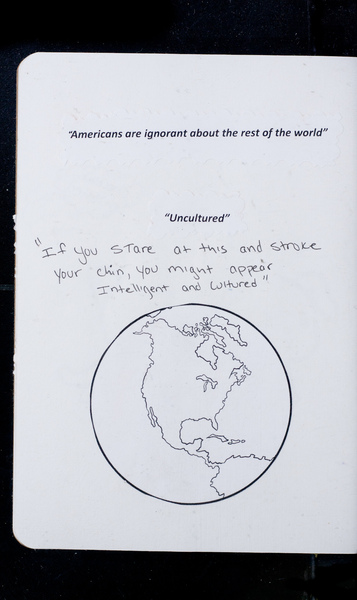 "Americans are ignorant about the rest of the world"
"Uncultured"
"If you stare at this and stroke
your chin, you might appear
Intelligent and cultured"